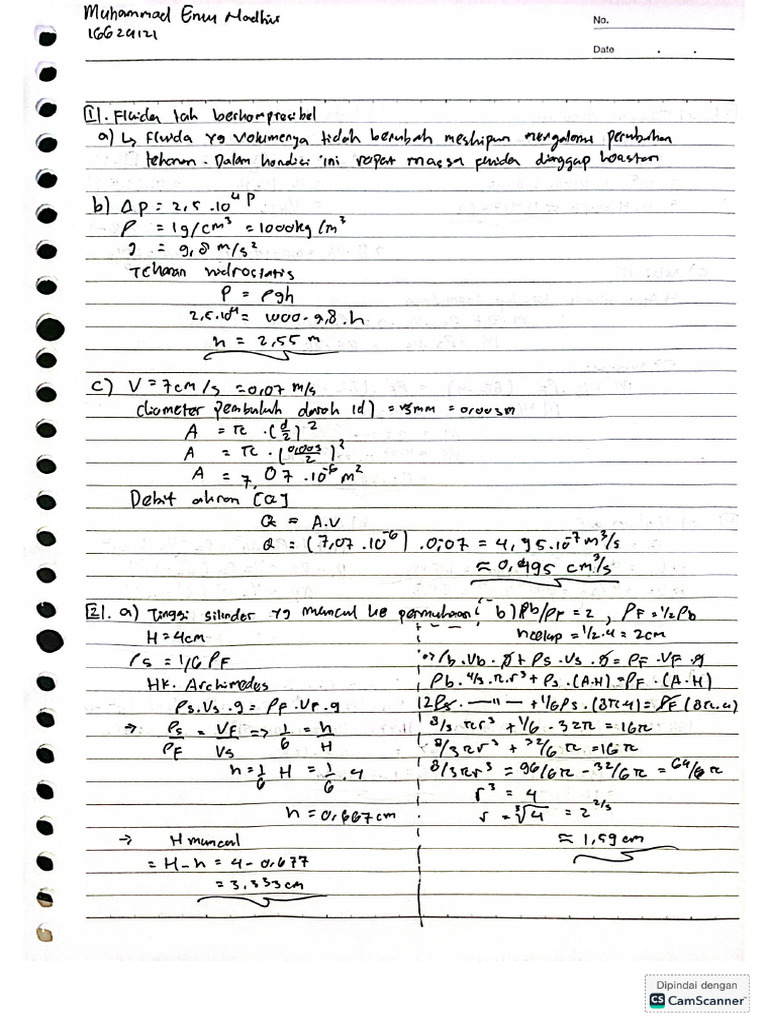 Muhammad
16624121
No.
Date
1. Fluida tak berkompresibel
a) ↳ Fluida yg volumenya tidak berubah meskipun mengalami perubahan
tekanan. Dalam kondisi ini rapat massa fluida dianggap konstan
b) Δp = 2,5 . 10⁴ P
ρ = 1g/cm³ = 1000kg/m³
g = 9,8 m/s²
Tekanan hidrostatis
P = ρgh
2,5.10⁴ = 1000 . 9,8 . h
h = 2,55 m
c) V = 7cm/s = 0,07 m/s
diameter pembuluh darah (d) = 3mm = 0,003m
A = π . (d/2)²
A = π . (0,003/2)²
A = 7,07 . 10⁻⁶ m²
Debit aliran [Q]
Q = A.V
Q = (7,07 . 10⁻⁶) . 0,07 = 4,95.10⁻⁷ m³/s
≈ 0,495 cm³/s
2. a) Tinggi silinder yg muncul ke permukaan
H = 4cm
ρs = 1/6 ρF
Hk. Archimedes
ρs.Vs.g = ρF.VF.g
→ ρs/ρF = VF/Vs => 1/6 = h/H
h = 1/6 H = 1/6 . 4
h = 0,667cm
→ H muncul
= H-h = 4 - 0,677
= 3,333cm
b) ρb/ρF = 2 , ρF = 1/2 ρb
hcelup = 1/2.4 = 2cm
ρb.Vb.g + ρs.Vs.g = ρF.VF.g
ρb.4/3.π.r³ + ρs.(A.H) = ρF.(A.H)
+ 1/6ρs.(8π.4) = ρF(8π.4)
8/3 πr³ + 1/6 . 32π = 16π
8/3πr³ + 32/6π = 16π
8/3πr³ = 96/6π - 32/6π = 64/6π
r³ = 4
r = ∛4 = 2^2/3
≈ 1,59 cm
Dipindai dengan
CS CamScanner